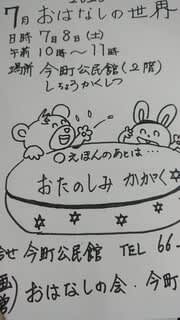 7月おはなしの世界
日時 7月8日(土)
午前 10時〜11時
場所 今町公民館(2階)
しちょうかくしつ
○えほんのあとは…
おたのしみ かがく
合せ 今町公民館 TEL 66-
おはなしの会・今町